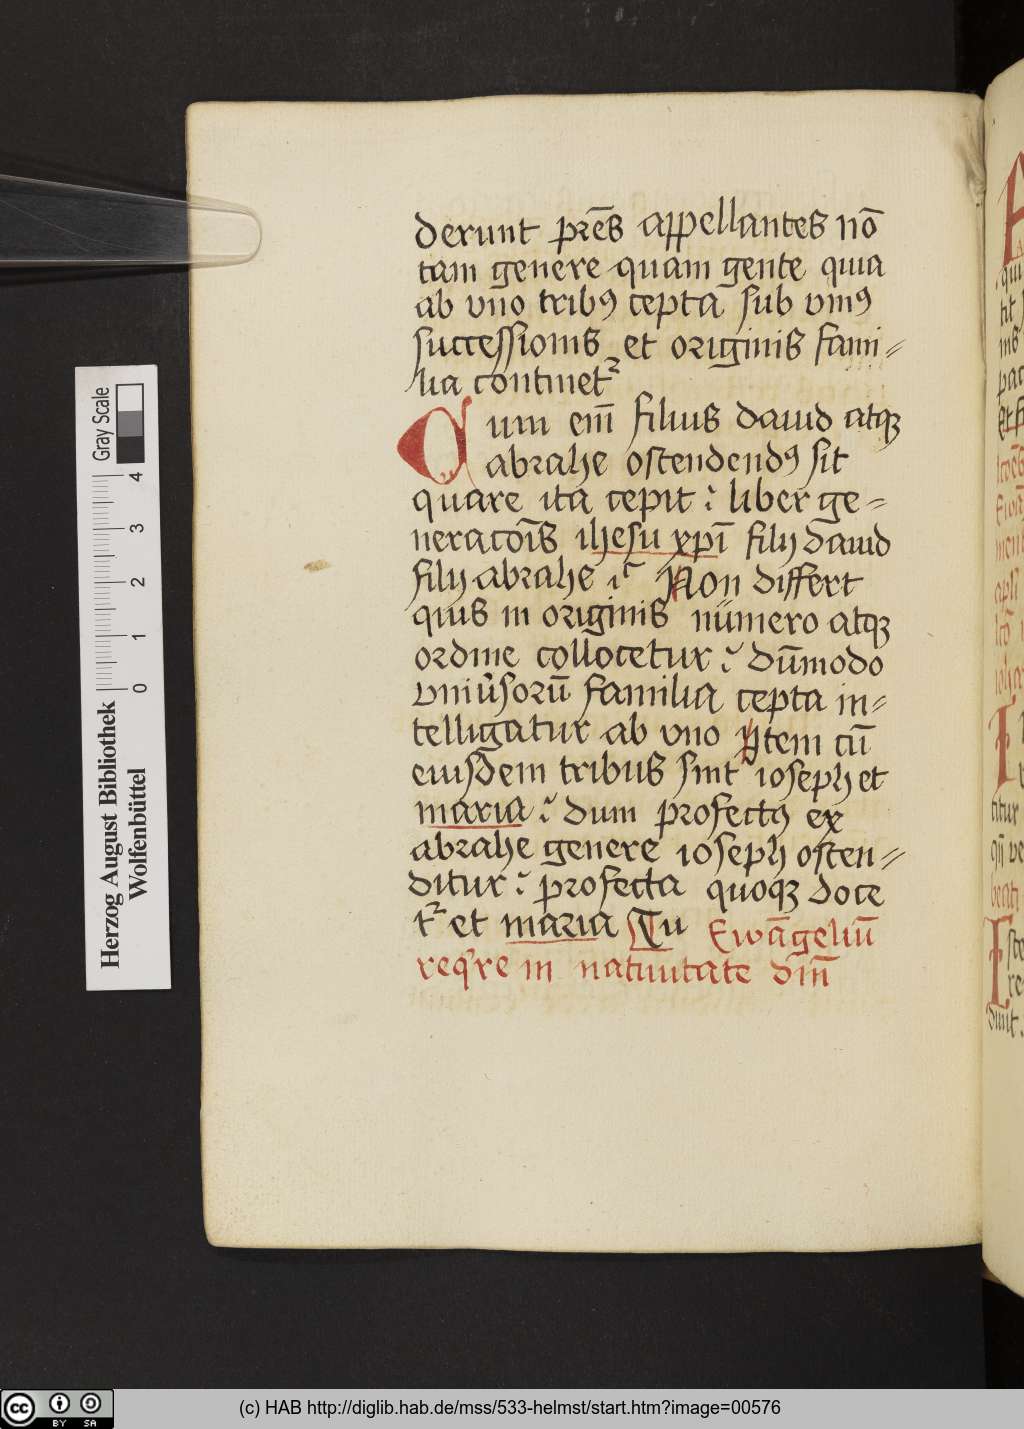 derunt pr̄es appellantes nō
tam genere quam gente quia
ab vno tribꝰ cepta sub vniꝰ
successionis et originis fami⸗
lia continetᷣ
Cum em̄ filius dauid atqꝫ
abrahe ostendendꝰ sit
quare ita cepit : liber ge⸗
neracōis ihesu xpī filij dauid
filij abrahe ic Non differt
quis in originis numero atqꝫ
ordine collocetur : dūmodo
vniūsorū familia cepta in⸗
telligatur ab vno Item cū
eiusdem tribus sint ioseph et
maria : dum profectꝰ ex
abrahe genere ioseph osten⸗
ditur : profecta quoqꝫ doce
tᷣ et maria Tu Ewāgeliū
reqͥre in natiuitate dīn
Herzog August Bibliothek
Wolfenbüttel
Gray Scale
0 1 2 3 4
BY SA
(c) HAB http://diglib.hab.de/mss/533-helmst/start.htm?image=00576